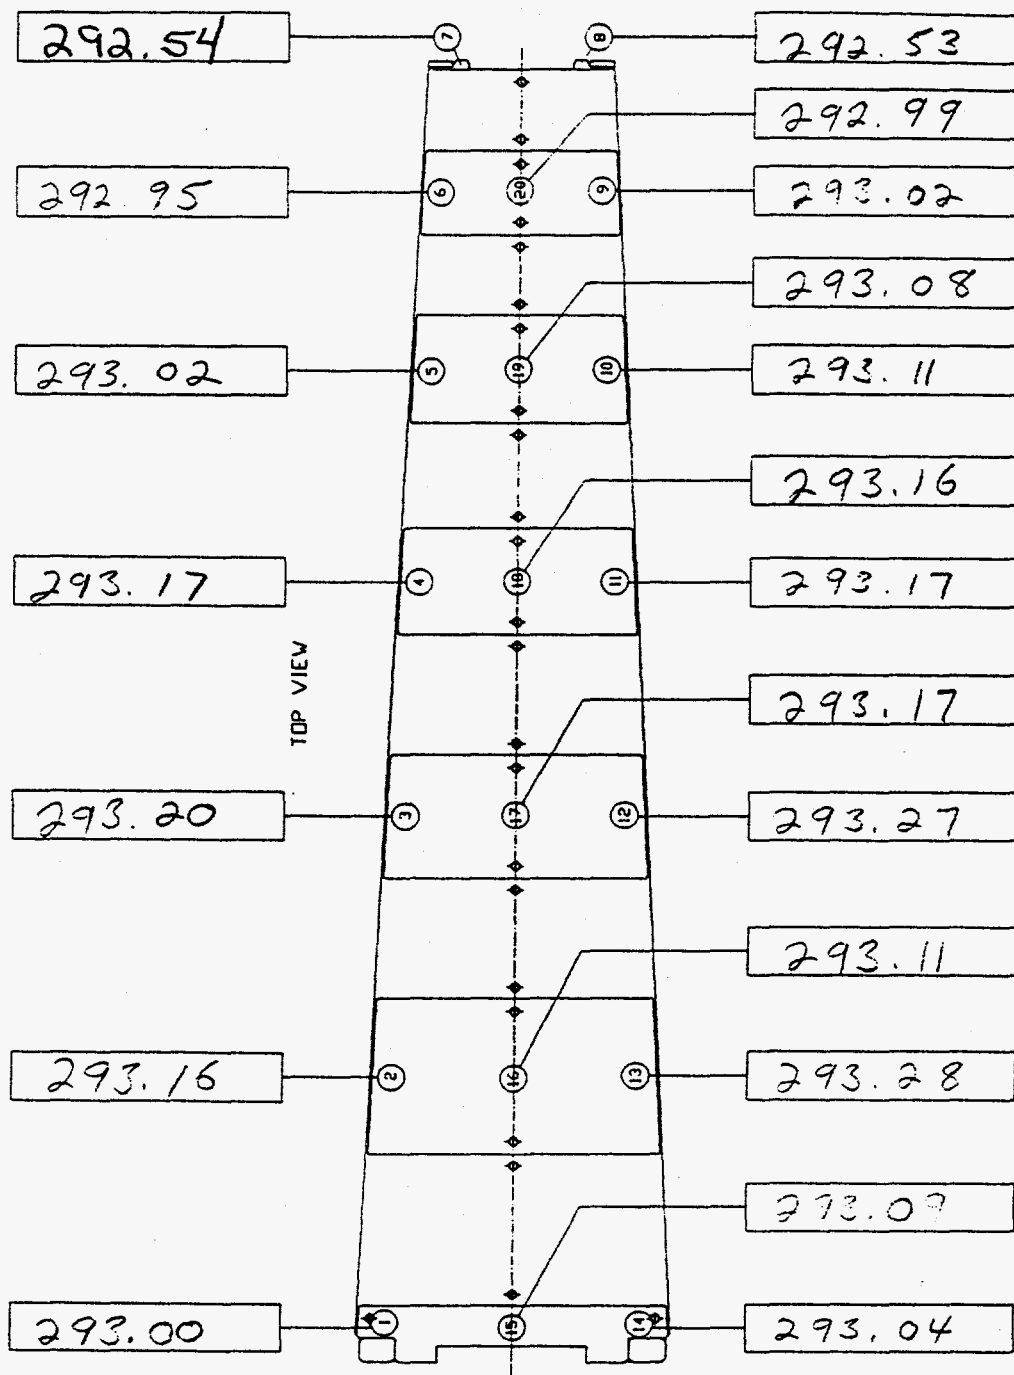 292.54
7
8
292.53
292.99
292.95
6
20
9
293.02
293.08
293.02
5
19
10
293.11
293.16
293.17
4
18
11
293.17
TOP VIEW
293.17
293.20
3
17
12
293.27
293.11
293.16
2
16
13
293.28
293.09
293.00
1
15
14
293.04